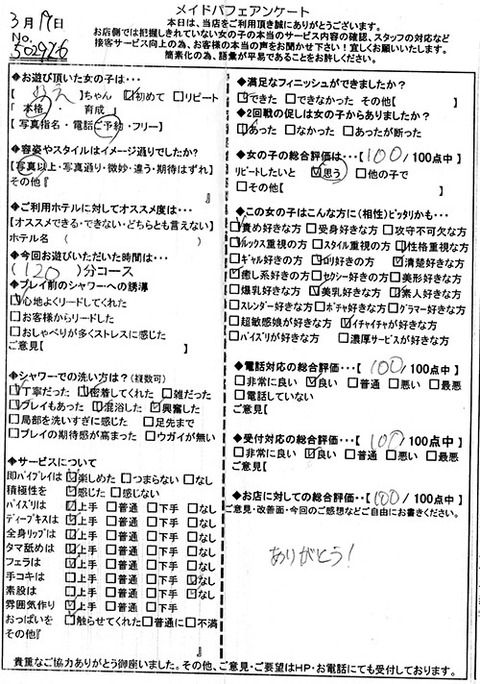 メイドパフェアンケート
3月19日
本日は、当店をご利用頂き誠にありがとうございます。
お店側では把握しきれていない女の子の本当のサービス内容の確認、スタッフの対応など
接客サービス向上の為、お客様の本当の声をお聞かせ下さい！宜しくお願いいたします。
簡素化の為、語彙が平易であることをお許しください。
No.
502926
◆お遊び頂いた女の子は…
ちゃん 初めて □リピート
「 本格 ・ 育成
【 写真指名・電話ご予約・フリー】
◆容姿やスタイルはイメージ通りでしたか？
【写真以上・写真通り・微妙・違う・期待はずれ】
その他『 』
◆ご利用ホテルに対してオススメ度は…
【オススメできる・できない・どちらとも言えない】
ホテル名 ( )
◆今回お遊びいただいた時間は…
(120)分コース
◆プレイ前のシャワーへの誘導
心地よくリードしてくれた
□お客様からリードした
□おしゃべりが多くストレスに感じた
ご意見【 】
◆シャワーでの洗い方は？(複数可)
丁寧だった 密着してくれた □雑だった
プレイもあった 混浴した 興奮した
□局部を洗いすぎに感じた □足先まで
□プレイの期待感が高まった □ウガイが無い
◆サービスについて
即パイプレイは 楽しめた □つまらない □なし
積極性を 感じた □感じない
パイズリは 上手 □普通 □下手 □なし
ディープキスは 上手 □普通 □下手 □なし
全身リップは 上手 □普通 □下手 □なし
タマ舐めは 上手 □普通 □下手 □なし
フェラは 上手 □普通 □下手 □なし
手コキは □上手 □普通 □下手 なし
素股は □上手 □普通 □下手 なし
雰囲気作り 上手 □普通 □下手
おっぱいを □触らせてくれた □普通に □不満
その他『 』
◆満足なフィニッシュができましたか？
できた □できなかった その他【 】
◆2回戦の促しは女の子からありましたか？
あった □なかった □あったが断った
◆女の子の総合評価は…【100/100点中】
リピートしたいと 思う □他の子で
□その他【 】
◆この女の子はこんな方に(相性)ピッタリかも…
責め好きな方 □受身好きな方 □攻守不可欠な方
ルックス重視の方 □スタイル重視の方 性格重視な方
□ギャル好きの方 ロリ好きの方 清楚好きな方
癒し系好きの方 □セクシー好きの方 □美形好きな方
□爆乳好きな方 美乳好きな方 素人好きな方
□スレンダー好きな方 □ポチャ好きな方 □グラマー好きな方
□超敏感娘が好きな方 イチャイチャが好きな方
□パイズリが好きな方 □濃厚サービスが好きな方
◆電話対応の総合評価…【100/100点中】
□非常に良い 良い □普通 □悪い □最悪
□電話していない
ご意見【 】
◆受付対応の総合評価…【100/100点中】
□非常に良い 良い □普通 □悪い □最悪
ご意見【 】
◆お店に対しての総合評価…【100/100点中】
ご意見・改善面・今回のご感想などご自由にお書きください。
ありがとう！
貴重なご協力ありがとう御座いました。その他、ご意見・ご要望はHP・お電話にても受付しております。